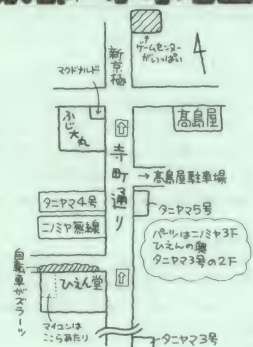 ゲームセンター
がいっぱい
新京極
マクドナルド
ふじ大丸
高島屋
寺町通り
→高島屋駐車場
タニヤマ4号
タニヤマ5号
ニノミヤ無線
パーツはニノミヤ3F
ひえんの奥
タニヤマ3号の2F
自転車がズラーッ
ひえん堂
マイコンは
ここらあたり
タニヤマ3号